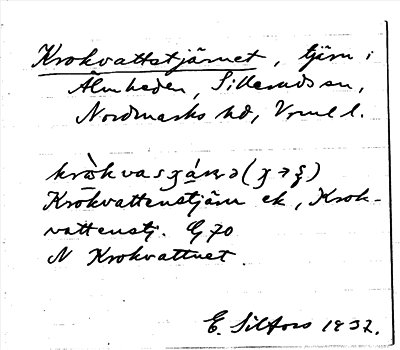 Krokvattstjärnet, tjärn i
Älmheden, Sillerud sn,
Nordmarks hd, Vrml l.
Krokvattenstjärn ek, Krok-
vattenstj. G 70
N Krokvattnet.
E. Silfors 1932.